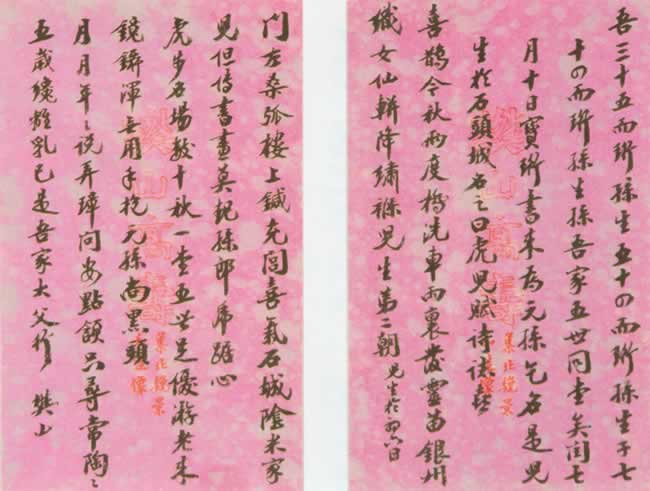 吾三十五而珩孫生五十四而珩孫生子七
十四而珩孫生孫吾家五世同堂矣閏七
月十日寶珩書來為元孫乞名是兒
生於石頭城名之曰虎兒賦詩
喜鵲今秋兩度橋洗車雨裏發靈苗銀州
織女仙軿降繡褓兒生第二朝 兒生於初八日
門左桑弧樓上鍼充閭喜氣石城陰米家
兒但傳書畫莫 孫郎帝 心
虎步名場數十秋一堂五世足優游老來
鏡鑷渾無用手抱元孫尚黑頭
月月年年說弄璋問安點頷只尋常陶陶
五歲纔離乳已是吾家大父行 樊山